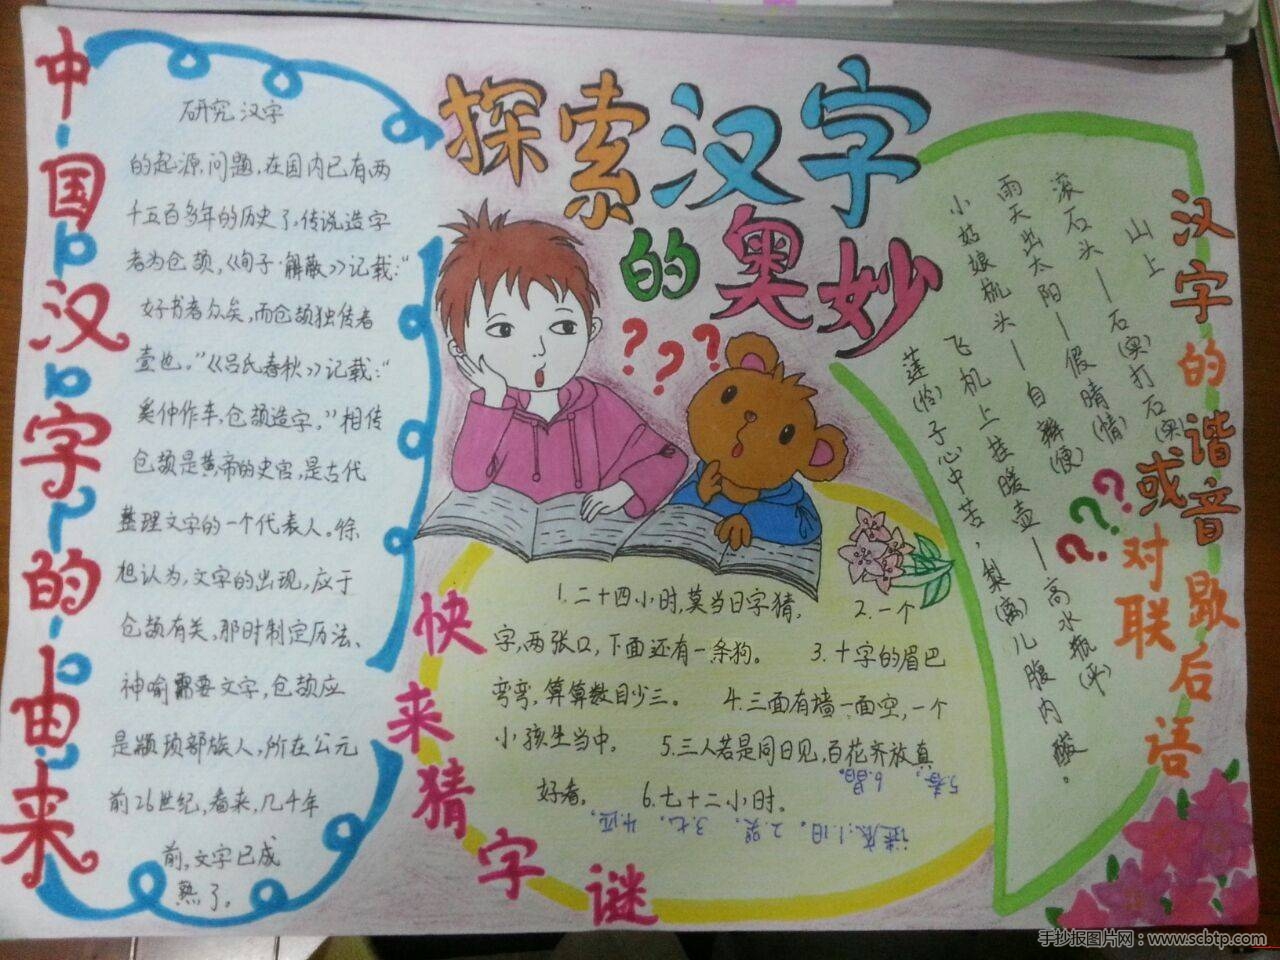 探索汉字
的奥妙
中国汉字的由来
研究汉字
的起源问题,在国内已有两
十五百多年的历史了,传说造字
者为仓颉,《荀子·解蔽》记载:“
好书者众矣,而仓颉独传者
壹也。”《吕氏春秋》记载:“
奚仲作车,仓颉造字。”相传
仓颉是黄帝的史官,是古代
整理文字的一个代表人。徐
想认为,文字的出现,应于
仓颉有关,那时制定历法、
神喻需要文字,仓颉应
是颛顼部族人,所在公元
前26世纪,看来,几千年
前,文字已成
熟了。
???
快来猜字谜
1.二十四小时,莫当日字猜,
2.一个
字,两张口,下面还有一条狗。
3.十字的眉巴
弯弯,算算数目少三。
4.三面有墙一面空,一个
小孩生当中。
5.三人若是同日见,百花齐放真
好看。
6.七十二小时。
谜底:1.旧。2.哭。3.七。4.匹,
5.春,6.晶。
汉字的谐音歇后语
或对联
???
山上
滚石头—石(实)打石(实)
雨天出太阳—假晴(情)
小姑娘梳头—自辫(便)
飞机上挂暖壶—高水瓶(平)
莲(怜)子心中苦,梨(离)儿腹内酸。
手抄报图片网:www.scbtp.com